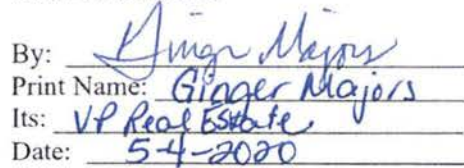 By: Ginger Majors
Print Name: Ginger Majors
Its: VP Real Estate
Date: 5-4-2020